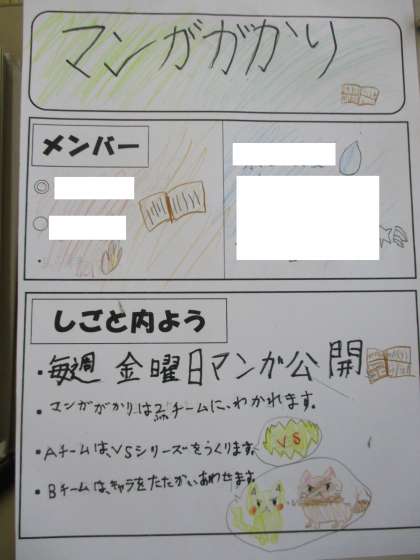 マンガがかり
メンバー
しごと内よう
・毎週 金曜日マンガ公開
・マンガがかりは2チームに、わかれます。
・Aチームは、VSシリーズをつくります。
VS
・Bチームは、キャラをたたかいあわせます。